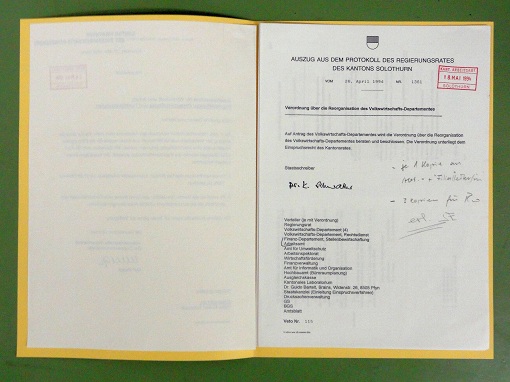 AUSZUG AUS DEM PROTOKOLL DES REGIERUNGSRATES
DES KANTONS SOLOTHURN
VOM 26. April 1994 NR. 1301
KANT. ARBEITSAMT
18 MAI 1994
SOLOTHURN
Verordnung über die Reorganisation des Volkswirtschafts-Departementes
Auf Antrag des Volkswirtschafts-Departementes wird die Verordnung über die Reorganisation
des Volkswirtschafts-Departementes beraten und beschlossen. Die Verordnung unterliegt dem
Einspruchsrecht des Kantonsrates.
Staatsschreiber
Dr. K. Schwaller
- je 1 Kopie an
Verteiler (je mit Verordnung)
Regierungsrat
Volkswirtschafts-Departement (4)
Volkswirtschafts-Departement, Rechtsdienst
Finanz-Departement, Stellenbewirtschaftung
Arbeitsamt
Amt für Umweltschutz
Arbeitsinspektorat
Wirtschaftsförderung
Finanzverwaltung
Amt für Informatik und Organisation
Hochbauamt (Büroraumplanung)
Ausgleichskasse
Kantonales Laboratorium
Dr. Guido Bartelt, Brains, 8505 Pfyn
Staatskanzlei (Einleitung Einspruchsverfahren)
Drucksachenverwaltung
GS
BGS
Amtsblatt
Veto Nr.